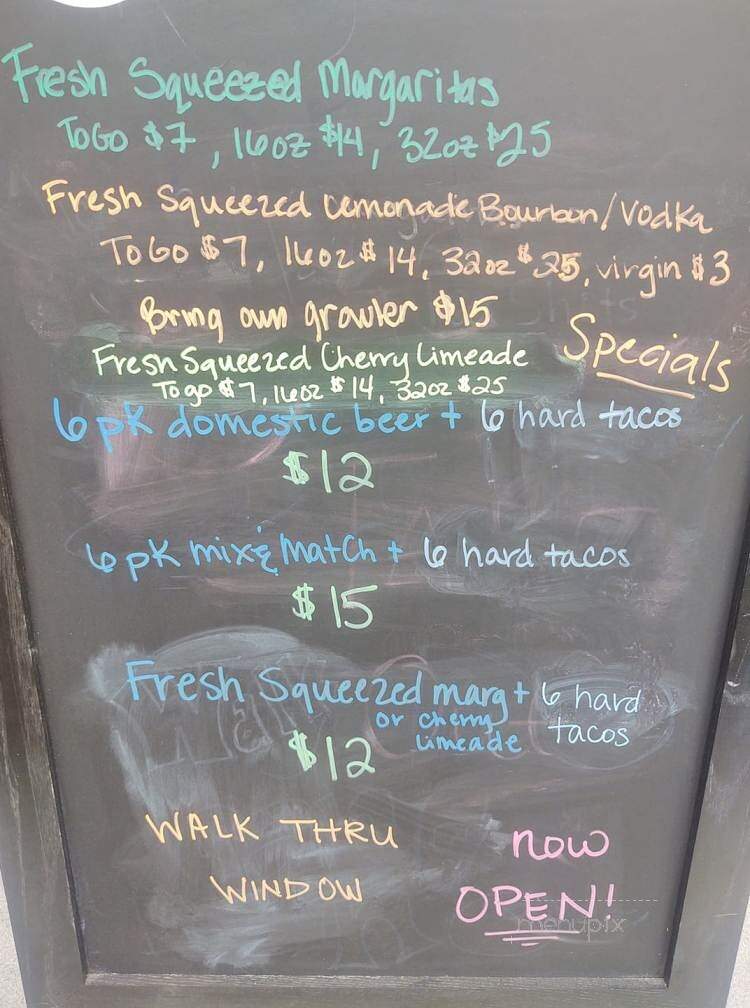 Fresh Squeezed Margaritas
ToGo $7, 16oz $14, 32oz $25
Fresh Squeezed Lemonade Bourbon/Vodka
ToGo $7, 16oz $14, 32oz $25, virgin $3
Bring own growler $15
Specials
Fresh Squeezed Cherry Limeade
To go $7, 16oz $14, 32oz $25
6 pk domestic beer + 6 hard tacos
$12
6 pk mix & Match + 6 hard tacos
$15
Fresh Squeezed marg + 6 hard tacos
or cherry limeade
$12
WALK THRU
WINDOW
NOW
OPEN!
menupix